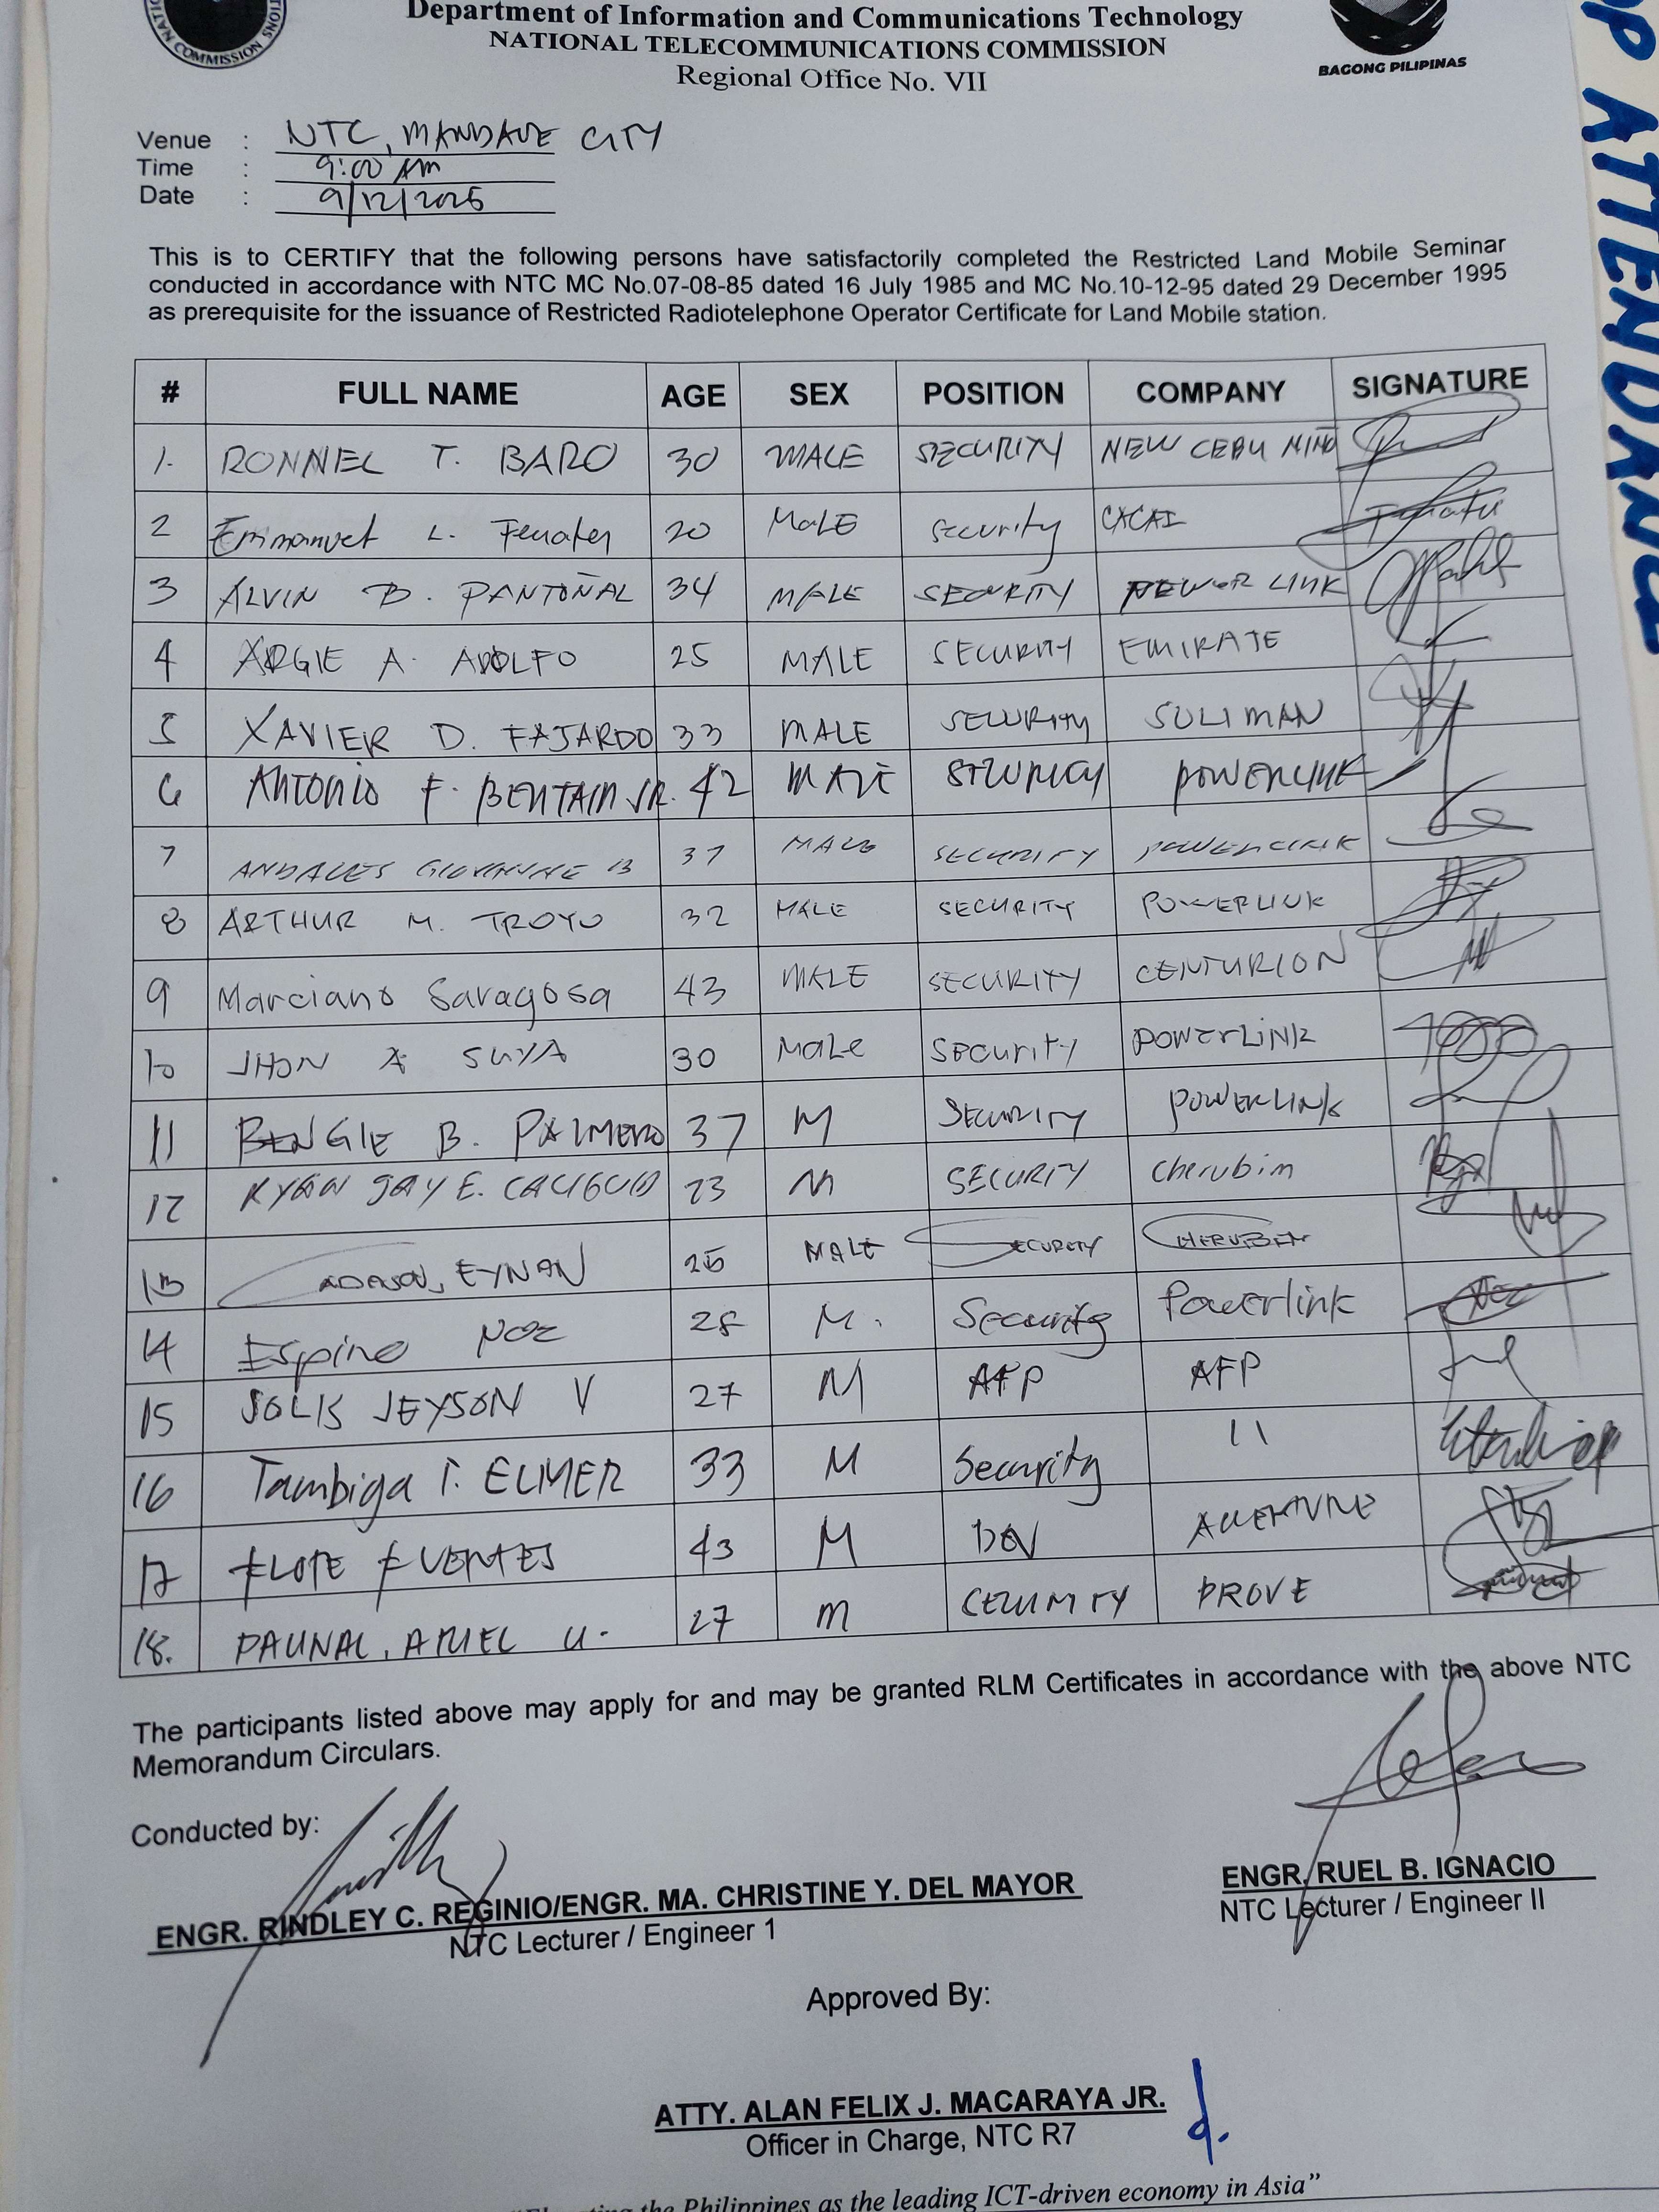 COMMISSION
Department of Information and Communications Technology
NATIONAL TELECOMMUNICATIONS COMMISSION
Regional Office No. VII
BAGONG PILIPINAS
OP ATTENDANCE
Venue : NTC, MANDAUE CITY
Time : 9:00 AM
Date : 9/12/2025
This is to CERTIFY that the following persons have satisfactorily completed the Restricted Land Mobile Seminar
conducted in accordance with NTC MC No.07-08-85 dated 16 July 1985 and MC No.10-12-95 dated 29 December 1995
as prerequisite for the issuance of Restricted Radiotelephone Operator Certificate for Land Mobile station.
# FULL NAME AGE SEX POSITION COMPANY SIGNATURE
1. RONNEL T. BARO 30 MALE SECURITY NEW CEBU
2 Emmanuel L. 20 MaLE Security CACAI
3 ALVIN B. PANTOÑAL 34 MALE SECURITY LINK
4 ARGIE A. ADOLFO 25 MALE SECURITY EMIRATE
5 XAVIER D. FAJARDO 33 MALE SECURITY SULIMAN
6 ANTONIO F. BENTAIN JR. 42 MALE SECURITY POWERLINK
7 ANDALES B 37 MALE SECURITY POWERLINK
8 ARTHUR M. TROYO 32 MALE SECURITY POWERLINK
9 Marciano Saragosa 43 MALE SECURITY CENTURION
10 JHON A SUYA 30 MaLe Security POWERLINK
11 BENGIE B. PALMERO 37 M SECURITY POWERLINK
12 RYAN JAY E. 23 M SECURITY Cherubim
13 EYNAN MALE SECURITY CHERUBIM
14 Espino NOE 28 M. Security Powerlink
15 SOLIS JEYSON V 27 M AFP AFP
16 Tambiga T. ELMER 33 M Security 11
17 FLOTE FUENTES 43 M
18. PAUNAL, ARIEL U. 27 M PROVE
The participants listed above may apply for and may be granted RLM Certificates in accordance with the above NTC
Memorandum Circulars.
Conducted by:
ENGR. RINDLEY C. REGINIO/ENGR. MA. CHRISTINE Y. DEL MAYOR
NTC Lecturer / Engineer 1
ENGR. RUEL B. IGNACIO
NTC Lecturer / Engineer II
Approved By:
ATTY. ALAN FELIX J. MACARAYA JR.
Officer in Charge, NTC R7
the Philippines as the leading ICT-driven economy in Asia”